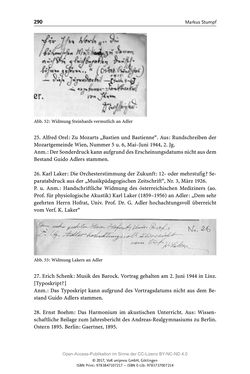 290
Markus Stumpf
Abb. 32: Widmung Steinhards vermutlich an Adler
25. Alfred Orel: Zu Mozarts „Bastien und Bastienne“. Aus: Rundschreiben der
Mozartgemeinde Wien, Nummer 5 u. 6, Mai-Juni 1944, 2. Jg.
Anm.: Der Sonderdruck kann aufgrund des Erscheinungsdatums nicht aus dem
Bestand Guido Adlers stammen.
26. Karl Laker: Die Orchesterstimmung der Zukunft: 12- oder mehrstufig? Se-
paratabdruck aus der „Musikpädagogischen Zeitschrift“, Nr. 3, März 1926.
P. u. Anm.: Handschriftliche Widmung des österreichischen Mediziners (ao.
Prof. für physiologische Akustik) Karl Laker (1859–1956) an Adler: „Dem sehr
geehrten Herrn Hofrat, Univ. Prof. Dr. G. Adler hochachtungsvoll überreicht
vom Verf. K. Laker“
No. 26
Abb. 33: Widmung Lakers an Adler
27. Erich Schenk: Musik des Barock. Vortrag gehalten am 2. Juni 1944 in Linz.
[Typoskript?]
Anm.: Das Typoskript kann aufgrund des Vortragsdatums nicht aus dem Be-
stand Guido Adlers stammen.
28. Ernst Boehm: Das Harmonium im akustischen Unterricht. Aus: Wissen-
schaftliche Beilage zum Jahresbericht des Andreas-Realgymnasiums zu Berlin.
Ostern 1895. Berlin: Gaertner, 1895.
Open-Access-Publikation im Sinne der CC-Lizenz BY-NC-ND 4.0
© 2017, V&R unipress GmbH, Göttingen
ISBN Print: 9783847107217 – ISBN E-Lib: 9783737007214